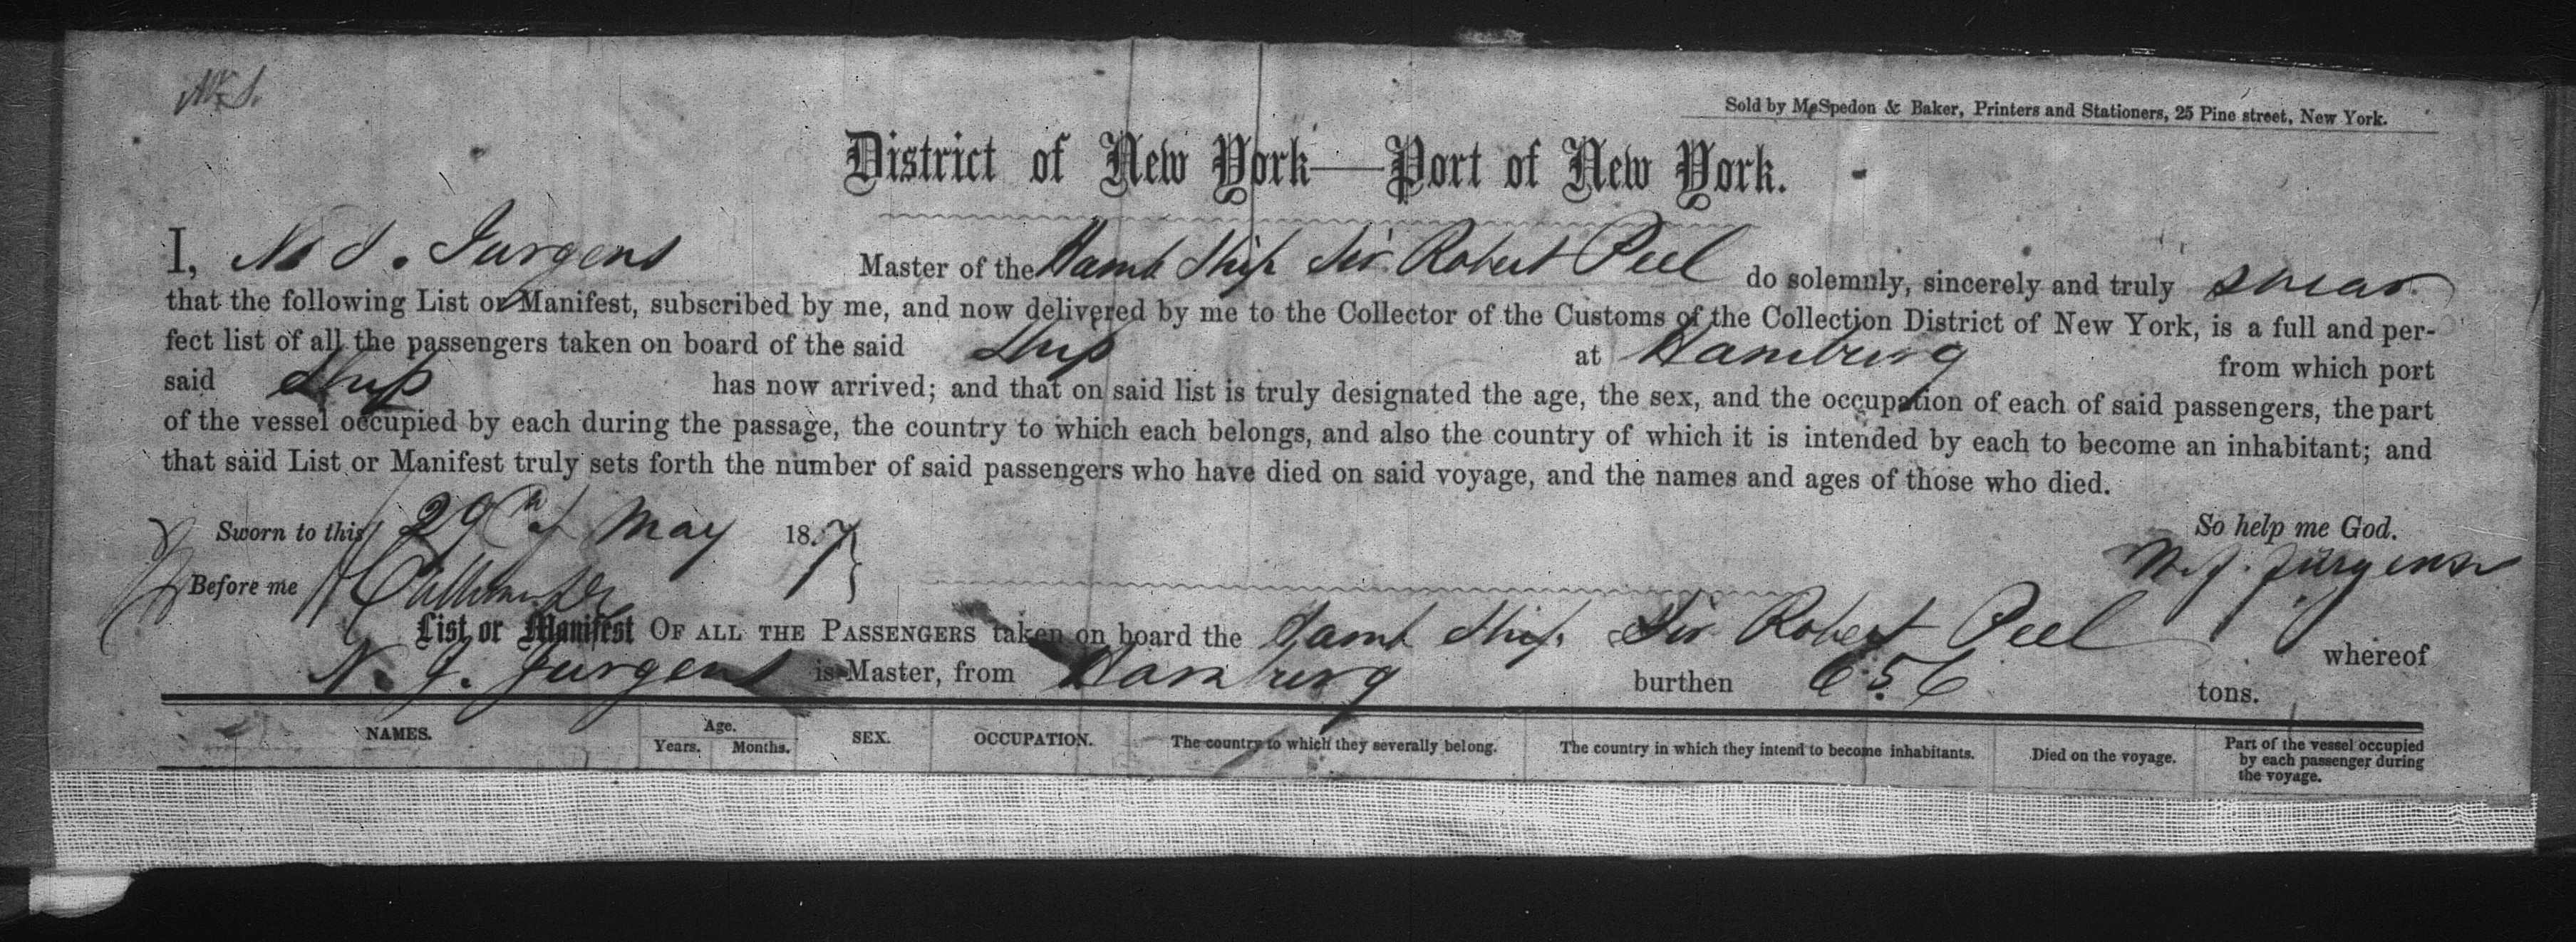 Sold by McSpedon & Baker, Printers and Stationers, 25 Pine street, New York.
District of New York—Port of New York.
I, N. J. Jurgens Master of the Hamb Ship Sir Robert Peel do solemnly, sincerely and truly swear
that the following List or Manifest, subscribed by me, and now delivered by me to the Collector of the Customs of the Collection District of New York, is a full and per-
fect list of all the passengers taken on board of the said Ship at Hamburg from which port
said Ship has now arrived; and that on said list is truly designated the age, the sex, and the occupation of each of said passengers, the part
of the vessel occupied by each during the passage, the country to which each belongs, and also the country of which it is intended by each to become an inhabitant; and
that said List or Manifest truly sets forth the number of said passengers who have died on said voyage, and the names and ages of those who died.
Sworn to this 29th of May 18 7 So help me God.
Before me N. J. Jürgens
List or Manifest OF ALL THE PASSENGERS taken on board the Hamb Ship Sir Robert Peel whereof
N. J. Jurgens is Master, from Hamburg burthen 656 tons.
NAMES. Age. Years. Months. SEX. OCCUPATION. The country to which they severally belong. The country in which they intend to become inhabitants. Died on the voyage. Part of the vessel occupied by each passenger during the voyage.